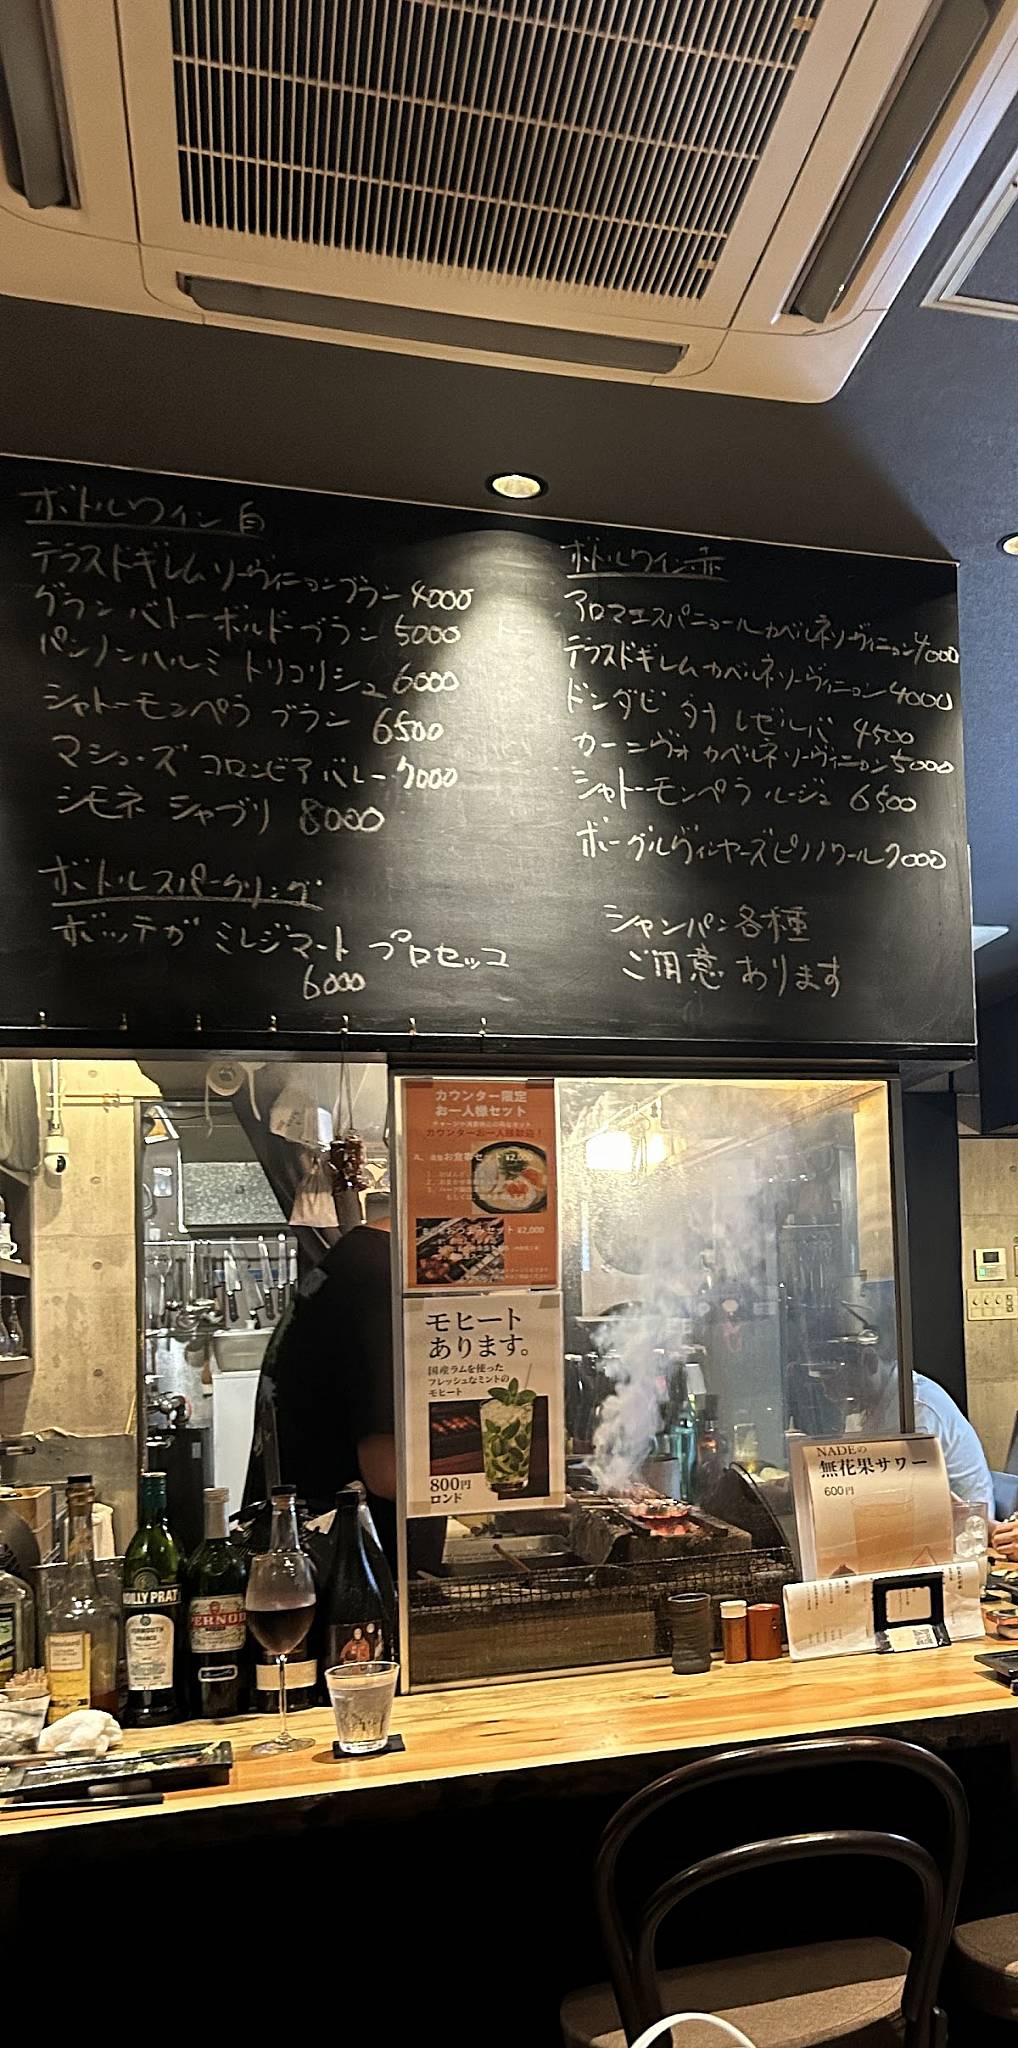 ボトルワイン 白
テラスドギレムソーヴィニョンブラン 4000
グランバトーボルドーブラン 5000
パンノンハルミ トリコリシュ 6000
シャトーモンペラ ブラン 6500
マシューズ コロンビアバレー 7000
シモネ シャブリ 8000
ボトルスパークリング
ボッテガ ミレジマート プロセッコ
6000
ボトルワイン 赤
アロマエスパニョールカベルネソーヴィニョン 4000
テラスドギレムカベルネソーヴィニョン 4000
ドンダビ タナ レゼルバ 4500
カーニヴォ カベルネソーヴィニョン 5000
シャトーモンペラ ルージュ 6500
ボーグルヴィンヤーズピノノワール 7000
シャンパン各種
ご用意あります
カウンター限定
お一人様セット
カウンターお一人様歓迎!
お食事セット ¥2,000
セット ¥2,000
モヒート
あります。
国産ラムを使った
フレッシュなミントの
モヒート
800円
ロンド
NADEの
無花果サワー
600円
NOILLY PRAT
PERNOD